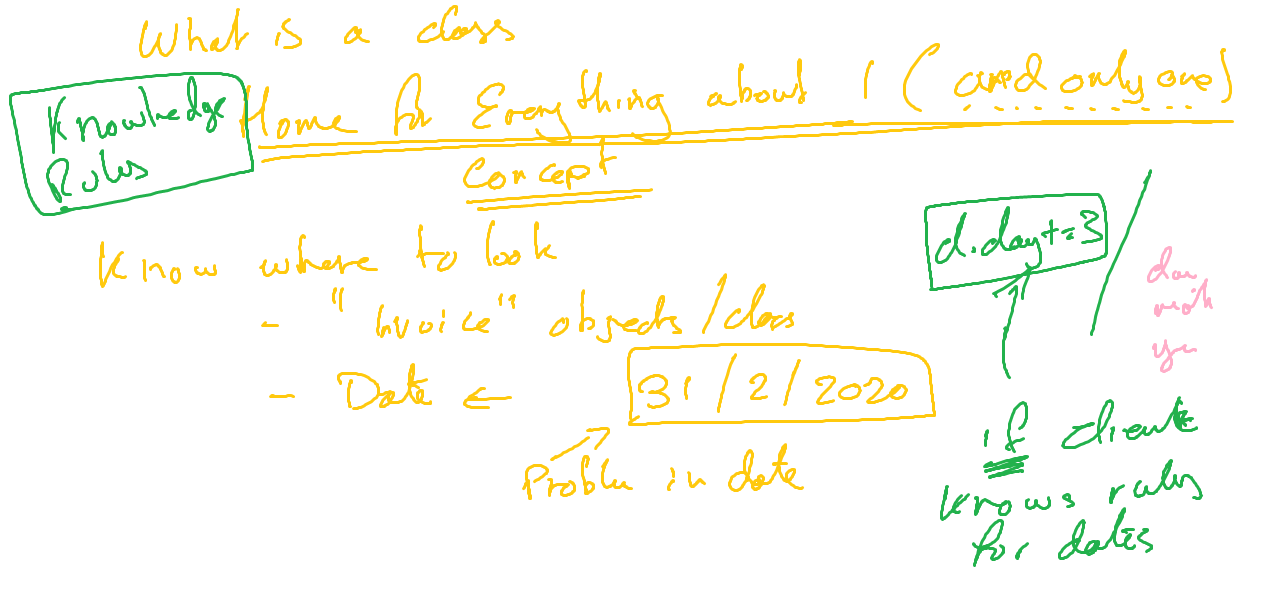 What is a class
Knowledge
Rules
Home for Everything about 1 (and only one)
Concept
Know where to look
- "Invoice" objects/class
- Date ← 31/2/2020
Problem in date
d.day+=3
day
month
year
if client
knows rules
for dates